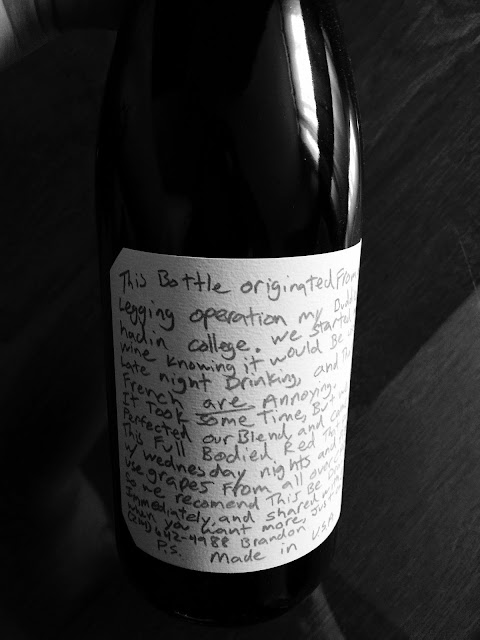 This Bottle originated From
Legging operation my Dudd
had in college. we started
wine knowing it would Be
Late night Drinking, and Th
French are Annoying.
It Took some Time, But
Perfected our Blend and
This Full Bodied Red
w/ wednesday nights and
use grapes From all over
so we recomend This Be
Immediately, and shared
when you want more, Just
642-4988 Brandon
P.S. Made in U.S.A